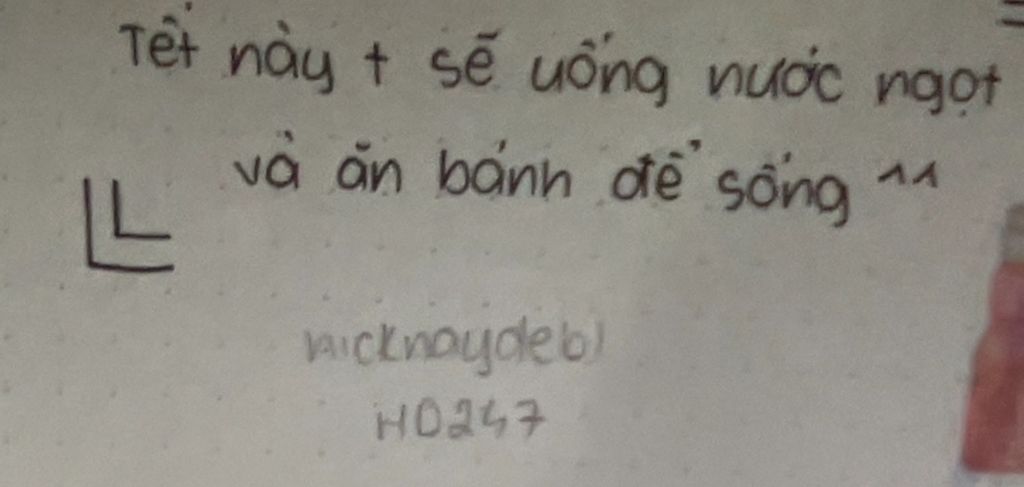 Tết này t sẽ uống nước ngọt
và ăn bánh để sống ^^
nicknaydeb)
HD247